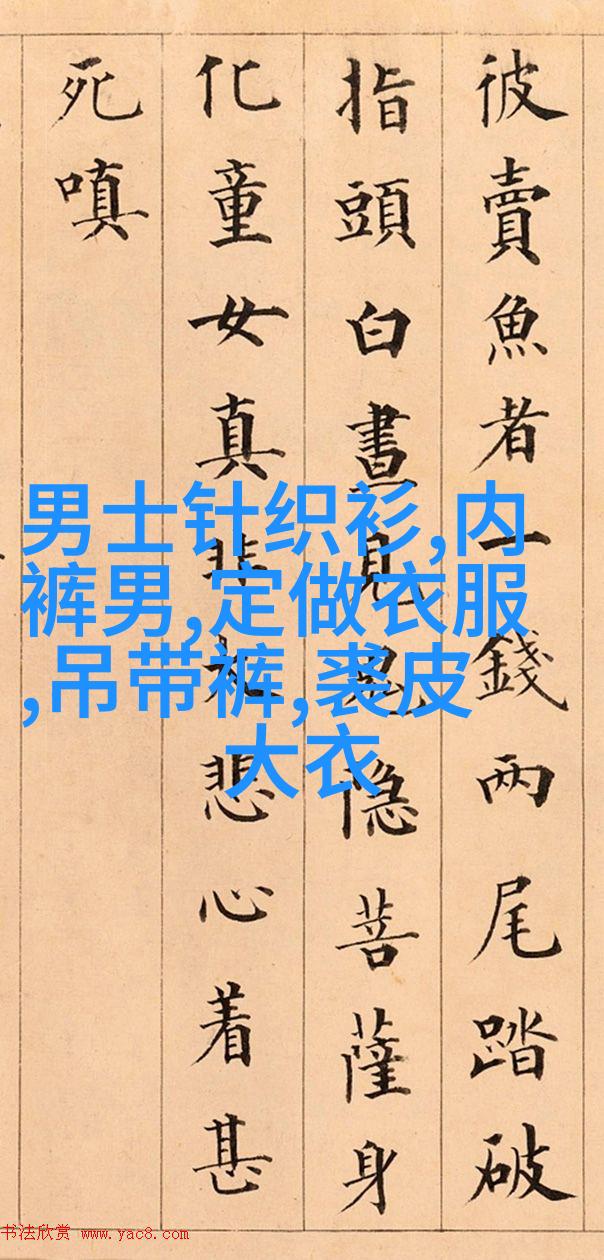 彼賣魚者一錢两尾踏破
指頭白晝見隐菩薩身
化童女真非悲心着甚
死嗔
男士针织衫,内
裤男,定做衣服
,吊带裤,裘皮
大衣
书法欣赏 www.yac8.com